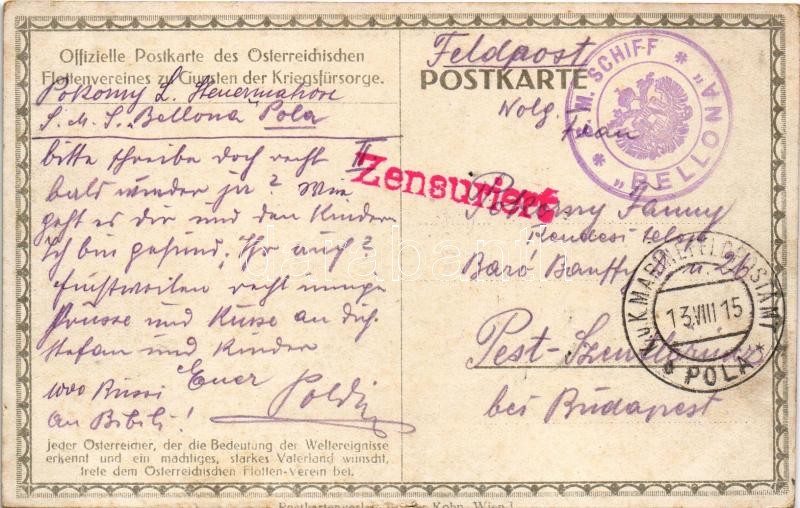 Offizielle Postkarte des Österreichischen
Flottenvereines zu Gunsten der Kriegsfürsorge.
Pokorny L. Steuermatrose
S. M. S. „Bellona" Pola
II
bitte schreibe doch recht
bald wieder ja? Wie
geht es dir und den Kindern
Ich bin gesund. Ihr auch?
Einstweilen recht innige
Grüsse und Küsse an dich
Stefan und Kinder
Euer Poldi
1000 Bussi
an Bibili!
jeder Österreicher, der die Bedeutung der Weltereignisse
erkennt und ein mächtiges, starkes Vaterland wünscht,
trete dem Österreichischen Flotten-Verein bei.
Zensuriert
Feldpost
POSTKARTE
M. SCHIFF * „BELLONA" *
Wolg.
Frau
Pokorny Fanny
telep
Baro Banffy u. 26
Pest-Szentlőrincz
bei Budapest
K.U.K. MARINEFELDPOSTAMT
13.VIII 15
b POLA *
Kohn, Wien I
darabanth